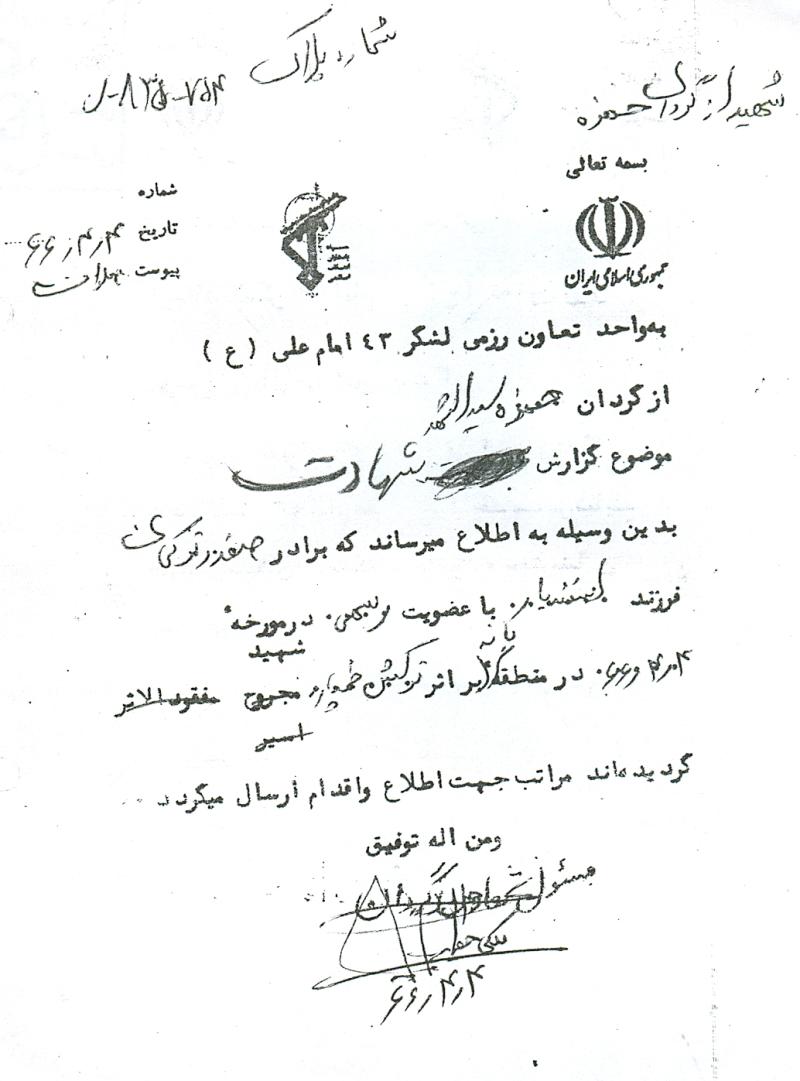 شماره پلاک
شهید از گردان حمزه
بسمه تعالی
جمهوری اسلامی ایران
شماره
تاریخ ۶۶/۴/۴
پیوست
به واحد تعاون رزمی لشگر ٤٣ امام علی (ع)
از گردان حمزه سیدالشهدا
موضوع گزارش شهادت
بدین وسیله به اطلاع میرساند که برادر صفدر
فرزند با عضویت بسیجی درمورخهٔ
۶۶/۴/۴ در منطقه بانه بر اثر ترکش خمپاره مجروح مفقودالاثر
شهید
اسیر
گردیده‌اند مراتب جهت اطلاع واقدام ارسال میگردد
ومن اله توفیق
مسئول تعاون گردان
۶۶/۴/۴